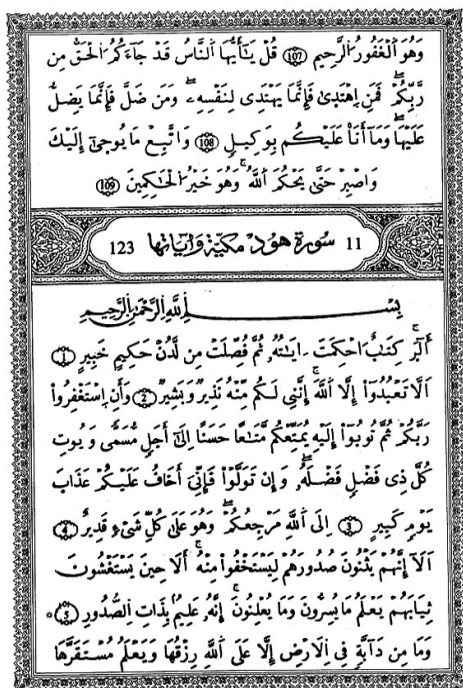 وَهُوَ الْغَفُورُ الرَّحِيمُ 107 قُلْ يَٰٓأَيُّهَا النَّاسُ قَدْ جَآءَكُمُ الْحَقُّ مِن
رَّبِّكُمْ فَمَنِ اِهْتَدَىٰ فَإِنَّمَا يَهْتَدِى لِنَفْسِهِۦ وَمَن ضَلَّ فَإِنَّمَا يَضِلُّ
عَلَيْهَا وَمَآ أَنَا۠ عَلَيْكُم بِوَكِيلٍ 108 وَاتَّبِعْ مَا يُوحَىٰٓ إِلَيْكَ
وَاصْبِرْ حَتَّىٰ يَحْكُمَ اَللَّهُ وَهُوَ خَيْرُ الْحَٰكِمِينَ 109
11 سورة هود مكية وءاياتها 123
بِسْمِ اِللَّهِ اِلرَّحْمَٰنِ اِلرَّحِيمِ
أَلَٓر كِتَٰبٌ احْكِمَتَ ـ ايَٰتُهُۥ ثُمَّ فُصِّلَتْ مِن لَّدُنْ حَكِيمٍ خَبِيرٍ 1
اَلَّا تَعْبُدُوٓا۟ إِلَّا اَللَّهَ إِنَّنِى لَكُم مِّنْهُ نَذِيرٌ وَبَشِيرٌ 2 وَأَنِ اِسْتَغْفِرُوا۟
رَبَّكُمْ ثُمَّ تُوبُوٓا۟ إِلَيْهِ يُمَتِّعْكُم مَّتَٰعًا حَسَنًا اِلَىٰٓ أَجَلٍ مُّسَمًّى وَيُوتِ
كُلَّ ذِى فَضْلٍ فَضْلَهُۥ وَإِن تَوَلَّوْا۟ فَإِنِّىَ أَخَافُ عَلَيْكُمْ عَذَابَ
يَوْمٍ كَبِيرٍ 3 اِلَى اَللَّهِ مَرْجِعُكُمْ وَهُوَ عَلَىٰ كُلِّ شَىْءٍ قَدِيرٌ 4
اَلَآ إِنَّهُمْ يَثْنُونَ صُدُورَهُمْ لِيَسْتَخْفُوا۟ مِنْهُ أَلَا حِينَ يَسْتَغْشُونَ
ثِيَابَهُمْ يَعْلَمُ مَا يُسِرُّونَ وَمَا يُعْلِنُونَ إِنَّهُۥ عَلِيمٌ بِذَاتِ اِلصُّدُورِ 5
وَمَا مِن دَآبَّةٍ فِى اِلَارْضِ إِلَّا عَلَى اَللَّهِ رِزْقُهَا وَيَعْلَمُ مُسْتَقَرَّهَا